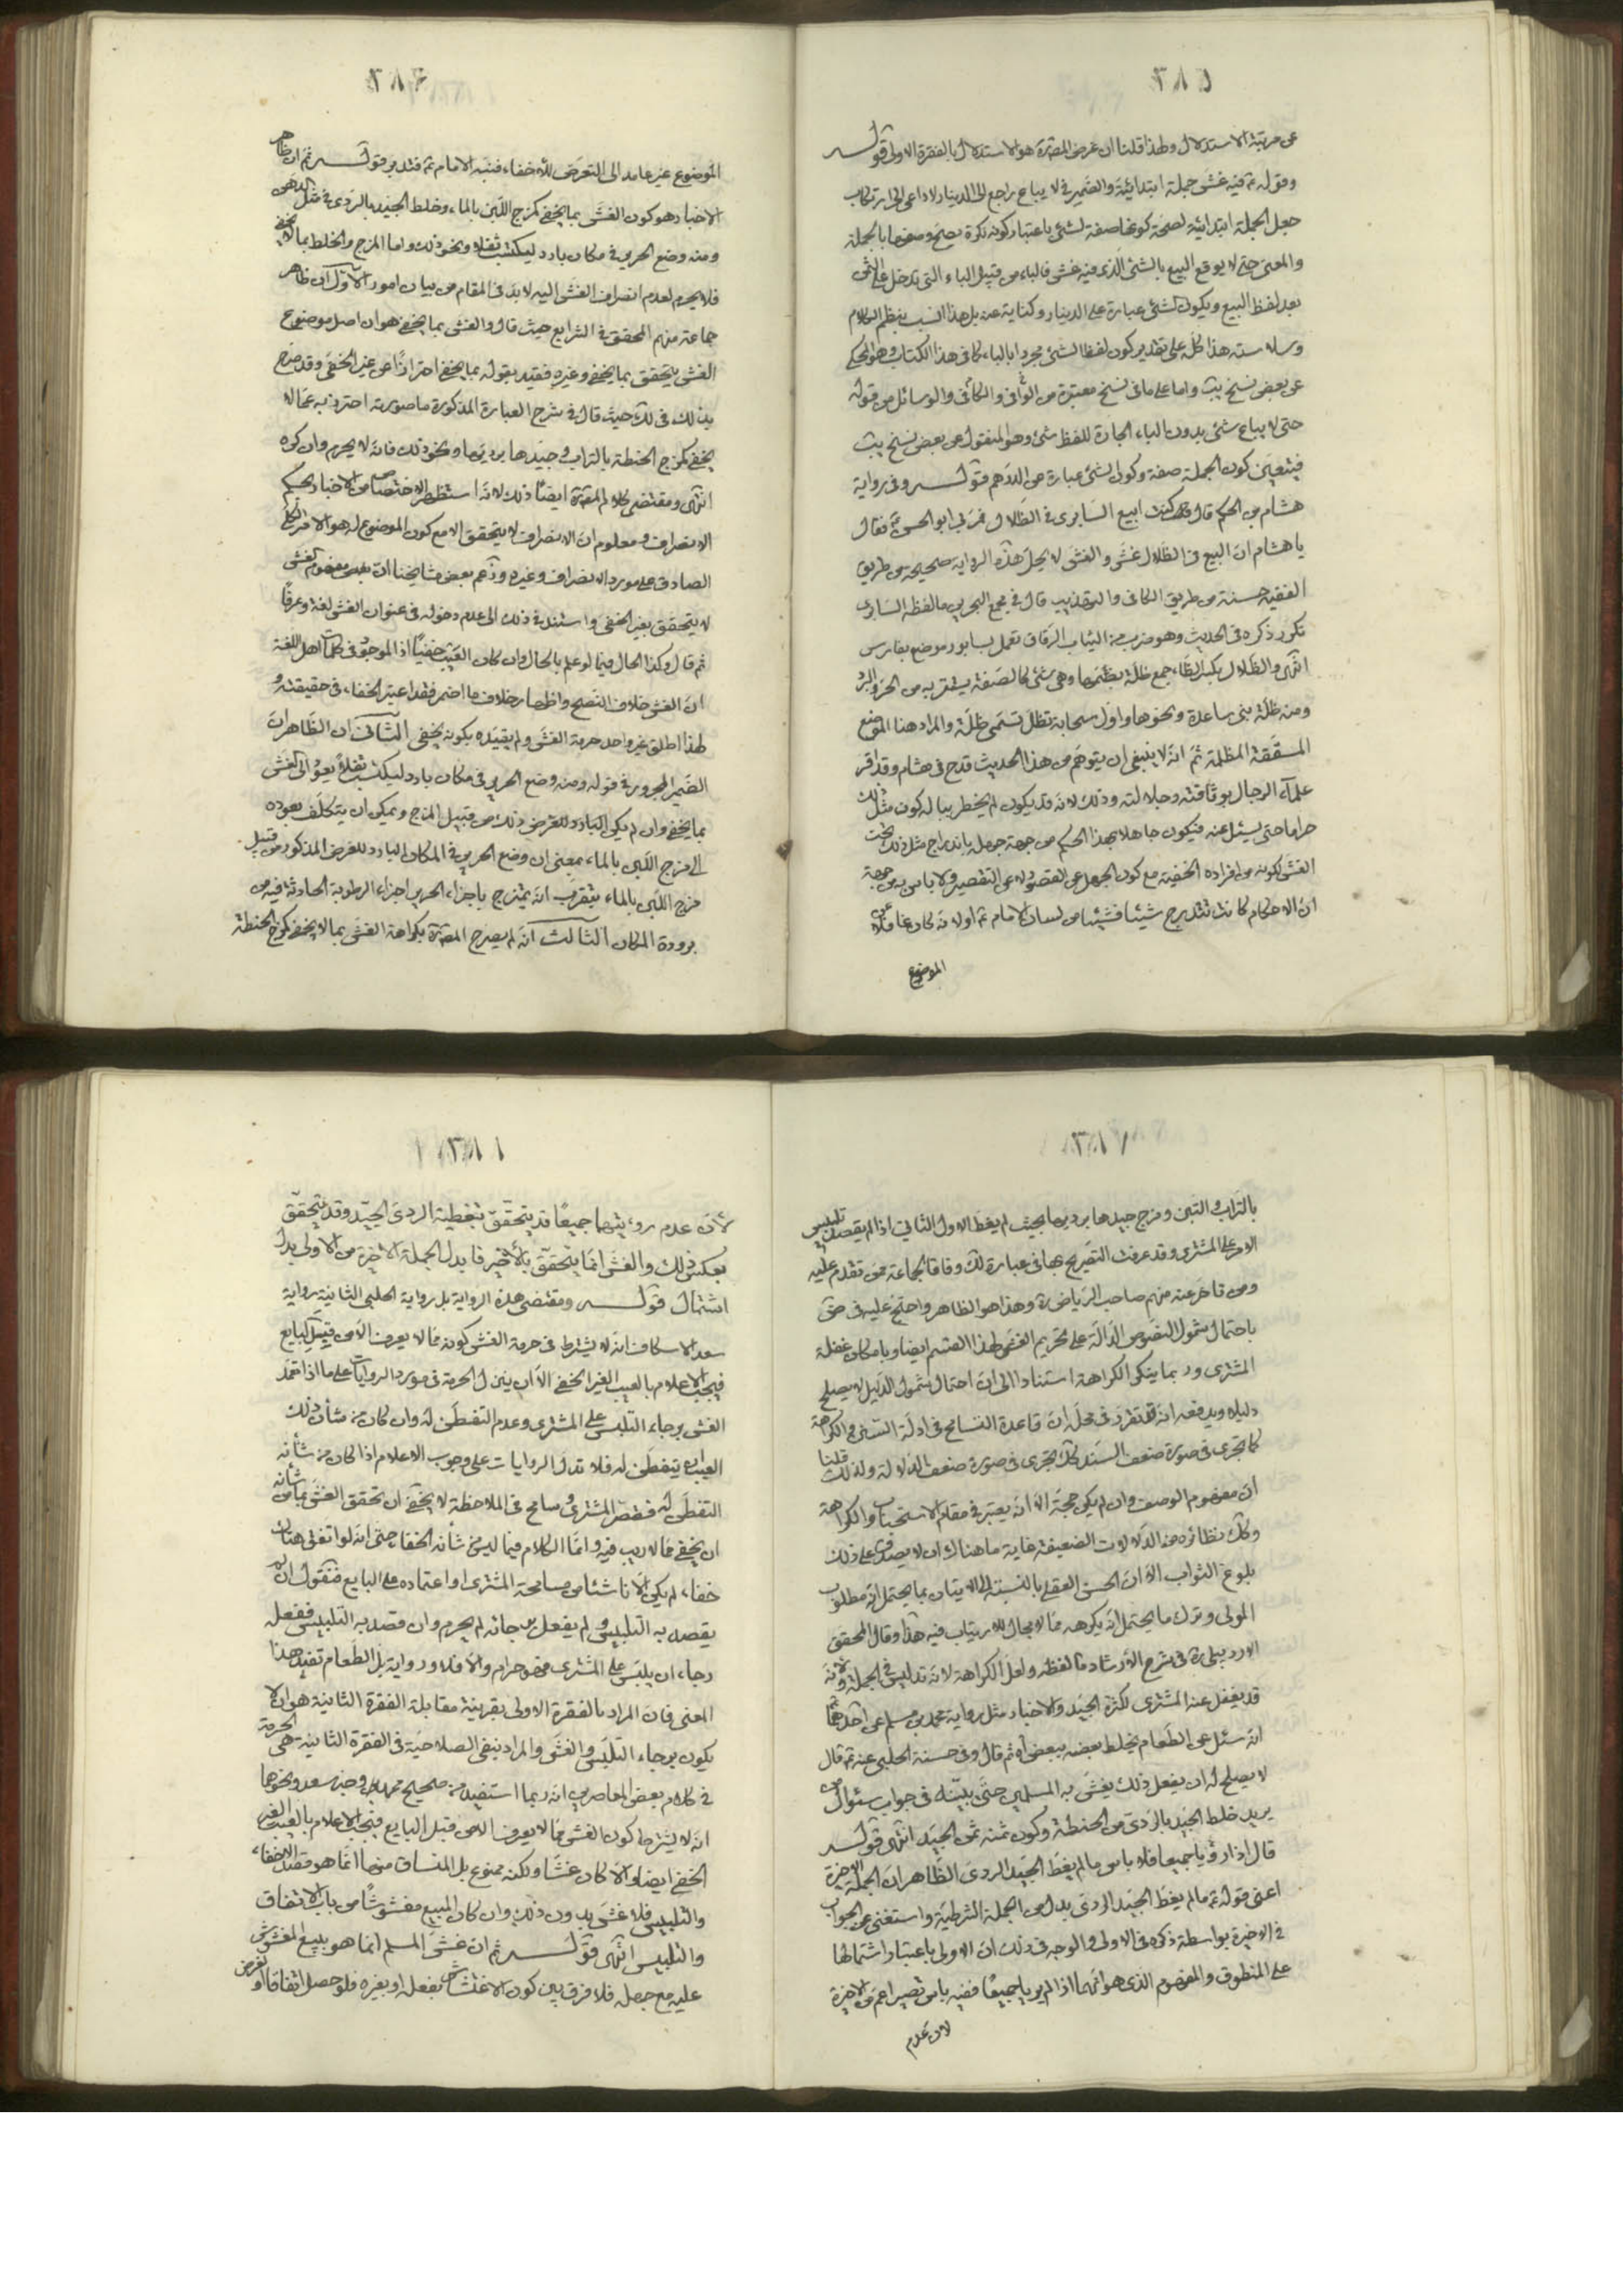 ٣٨٥
عن مرتبة الاستدلال ولهذا قلنا ان غرض المصنف ره هو الاستدلال بالفقرة الاولى قوله
وقوله ع فيه غش جملة ابتدائية والضمير في لا يباع راجع الى الدينار ولا داعي الى ارتكاب
جعل الجملة ابتدائية لصحة كونها صفة لشئ باعتبار كونه نكرة يصح وصفها بالجملة
والمعنى حتى لا يوقع البيع بالشئ الذى فيه غش فالباء من قبيل الباء التى تدخل على الثمن
بعد لفظ البيع ويكون لشئ عبارة على الدينار وكناية عنه بل هذا انسب بنظم الكلام
وسلاسته هذا كله على تقدير كون لفظ الشئ مجرورا بالباء كما فى هذا الكتاب وهو المحكى
عن بعض نسخ يب واما على ما فى نسخ معتبرة من الوافى والكافى والوسائل من قوله
حتى لا يباع شئ بدون الباء الجارة للفظ شئ وهو المنقول عن بعض نسخ يب
فيتعين كون الجملة صفة وكون الشئ عبارة عن الدرهم قوله وفى رواية
هشام بن الحكم قال كنت ابيع السابرى فى الظلال فمر بى ابو الحسن ع فقال
يا هشام ان البيع فى الظلال غش والغش لا يحل هذه الرواية صحيحة من طريق
الفقيه حسنة من طريق الكافى والتهذيب قال فى مجمع البحرين ما لفظه السابرى
تكرر ذكره فى الحديث وهو ضرب من الثياب الرقاق تعمل بسابور موضع بفارس
انتهى والظلال بكسر الظاء جمع ظلة بضمها وهى شئ كالصفة يستتر به من الحر والبرد
ومنه ظلة بنى ساعدة ونحوها واول سحابة تظل تسمى ظلة والمراد هنا المواضع
المسقفة المظلمة ثم انه لا ينبغى ان يتوهم من هذا الحديث قدح فى هشام وقد اقر
علماء الرجال بوثاقته وجلالته وذلك لانه قد يكون لم يخطر بباله كون مثل ذلك
حراما حتى يسئل عنه فيكون جاهلا بهذا الحكم من جهة جهله باندراج مثل ذلك تحت
الغش لكونه من افراده الخفية مع كون الجهل عن القصور لا عن التقصير ولا باس به من جهة
ان الاحكام كانت تتدرج شيئا فشيئا من لسان الامام ع او لانه كان غافلا عن
الموضوع
٣٨٦
الموضوع غير عامد الى التعرض للاخفاء فنبه الامام ع فتدبر قوله ثم ان ظاهر
الاخبار هو كون الغش بما يخفى كمزج اللبن بالماء وخلط الجيد بالردى فى مثل الدهن
ومنه وضع الحرير فى مكان بارد ليكتسب ثقلا ونحو ذلك واما المزج والخلط بما لا يخفى
فلا يحرم لعدم انصراف الغش اليه لا بد فى المقام من بيان امور الاول ان ظاهر
جماعة منهم المحقق فى الشرايع حيث قال والغش بما يخفى هو ان اصل موضوع
الغش يتحقق بما يخفى وغيره فقيد بقوله بما يخفى احترازا من غير الخفى وقد صرح
بذلك فى لك حيث قال فى شرح العبارة المذكورة ما صورته احترز به عما لا
يخفى كمزج الحنطة بالتراب وجيدها برديها ونحو ذلك فانه لا يحرم وان كره
انتهى ومقتضى كلام المصنف ره ايضا ذلك لانه استظهر الاختصاص من الاخبار بحكم
الانصراف ومعلوم ان الانصراف لا يتحقق الا مع كون الموضوع له هو الامر الكلى
الصادق على مورد الانصراف وغيره وزعم بعض مشايخنا ان مفهوم الغش
لا يتحقق بغير الخفى واستند فى ذلك الى عدم دخوله فى عنوان الغش لغة وعرفا
ثم قال وكذا الحال فيما لو علم بالحال وان كان العيب خفيا اذ الموجود فى كلمات اهل اللغة
ان الغش خلاف النصح واظهار خلاف ما اضمر فقد اعتبر الخفاء فى حقيقته و
لهذا اطلق غير واحد حرمة الغش ولم يقيده بكونه يخفى الثانى ان الظاهر ان
الضمير المجرور فى قوله ومنه وضع الحرير فى مكان بارد ليكتسب ثقلا يعود الى الغش
بما يخفى وان لم يكن البارد للغرض ذلك من قبيل المزج ويمكن ان يتكلف بعوده
الى مزج اللبن بالماء بمعنى ان وضع الحرير فى المكان البارد للغرض المذكور من قبيل
مزج اللبن بالماء بتقريب انه يمتزج باجزاء الحرير اجزاء الرطوبة الحادثة فيه من
برودة المكان الثالث انه لم يصرح المصنف ره بكراهة الغش بما لا يخفى كمزج الحنطة
٣٨٧
بالتراب والتبن ومزج جيدها برديها بحيث لم يغط الاول الثانى اذا لم يقصد تلبيس
الامر على المشترى وقد عرفت التصريح بها فى عبارة لك وفاقا لجماعة ممن تقدم عليه
ومن تاخر عنه منهم صاحب الرياض ره وهذا هو الظاهر واحتج عليه فى ض
باحتمال شمول النصوص الدالة على تحريم الغش لهذا القسم ايضا وبامكان غفلة
المشترى وربما ينكر الكراهة استنادا الى ان احتمال شمول الدليل لا يصلح
دليلا ويدفعه انه قد تقرر فى محله ان قاعدة التسامح فى ادلة السنن والكراهة
كما تجرى فى صورة ضعف السند كك تجرى فى صورة ضعف الدلالة ولذلك قلنا
ان مفهوم الوصف وان لم يكن حجة الا انه يعتبر فى مقام الاستحباب والكراهة
وكك نظائره من الدلالات الضعيفة غاية ما هناك ان لا يصدق على ذلك
بلوغ الثواب الا ان الحسن العقلى بالنسبة الى الاتيان بما يحتمل انه مطلوب
المولى وترك ما يحتمل انه يكرهه مما لا مجال للارتياب فيه هذا وقال المحقق
الاردبيلى ره فى شرح الارشاد ما لفظه ولعل الكراهة لانه تدليس فى الجملة ولانه
قد يغفل عنه المشترى لكثرة الجيد والاخبار مثل رواية محمد بن مسلم عن احدهما ع
انه سئل عن الطعام يخلط بعضه ببعض اه ثم قال وفى حسنة الحلبى عنه ع قال
لا يصلح له ان يفعل ذلك يغش به المسلمين حتى يبينه فى جواب سئوال من
يريد خلط الجيد بالردى من الحنطة وكون ثمنه ثمن الجيد انتهى قوله
قال اذا رؤيا جميعا فلا باس ما لم يغط الجيد الردى الظاهر ان الجملة الاخيرة
اعنى قوله ع ما لم يغط الجيد الردى بدل من الجملة الشرطية واستغنى عن الجواب
فى الاخيرة بواسطة ذكره فى الاولى والوجه فى ذلك ان الاولى باعتبار اشتمالها
على المنطوق والمفهوم الذى هو انهما اذا لم يريا جميعا ففيه باس تصير اعم من الاخيرة
لان عدم
٣٨٨
لأن عدم رؤيتهما جميعا قد يتحقق بتغطية الردى الجيد وقد يتحقق
بعكس ذلك والغش انما يتحقق بالأخير فابدل الجملة الاخيرة من الاولى بدل
اشتمال قوله ومقتضى هذه الرواية بل رواية الحلبى الثانية ورواية
سعد الاسكاف انه لا يشترط فى حرمة الغش كونه مما لا يعرف الا من قبل البايع
فيجب الاعلام بالعيب الغير الخفى الا ان ينزل الحرمة فى مورد الروايات على ما اذا تعمد
الغش برجاء التلبس على المشترى وعدم التفطن له وان كان من شأن ذلك
العيب ان يتفطن له فلا تدل الروايات على وجوب الاعلام اذا كان من شأنه
التفطن له فقصر المشترى وسامح فى الملاحظة لا يخفى ان تحقق الغش بما من شأنه
ان يخفى مما لا ريب فيه وانما الكلام فيما ليس من شأنه الخفاء حتى انه لو اتفق هناك
خفاء لم يكن الا ناشئا من مسامحة المشترى او اعتماده على البايع فنقول ان لم
يقصد به التلبيس ولم يفعل برجائه لم يحرم وان قصد به التلبيس ففعله
رجاء ان يلبس على المشترى فهو حرام والا فلا ورواية بل الطعام تفيد هذا
المعنى فان المراد بالفقرة الاولى بقرينة مقابلة الفقرة الثانية هو ان لا
يكون برجاء التلبس والغش والمراد بنفى الصلاحية فى الفقرة الثانية هى الحرمة
فى كلام بعض المعاصرين انه ربما استفيد من صحيح محمد بن وخبر سعد ونحوهما
انه لا يشترط كون الغش مما لا يعرف الا من قبل البايع فيجب الاعلام بالعيب الغير
الخفى ايضا والا كان غشا ولكنه ممنوع بل المنساق منهما انما هو قصد الاخفاء
والتلبيس فلا غش بدون ذلك وان كان المبيع مغشوشا من باب الاتفاق
والتلبيس انتهى قوله ثم ان غش المسلم انما هو ببيع المغشوش
عليه مع جهله فلا فرق بين كون الاغتشاش بفعله او بغيره فلو حصل اتفاقا او لغرض